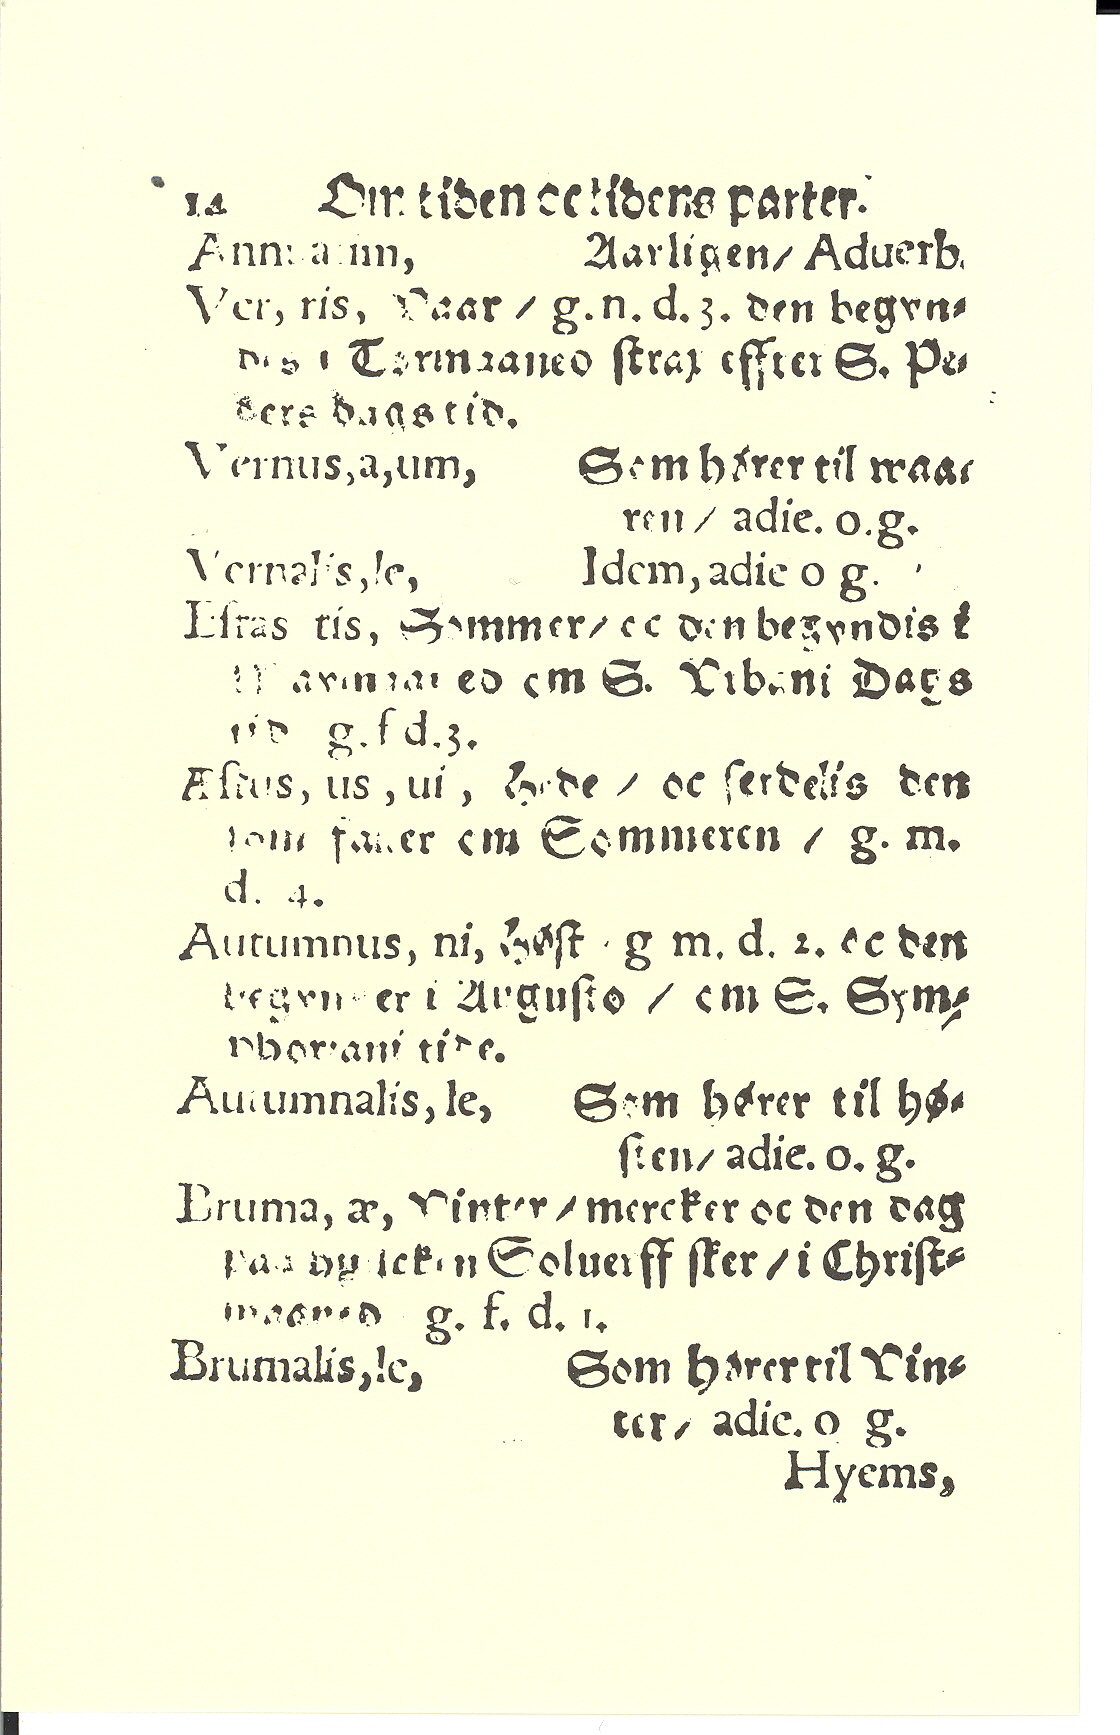 14 Om tiden oc tidens parter.
Annuatim, Aarligen / Aduerb.
Ver, ris, Vaar / g. n. d. 3. den begyn⸗
dis i Tormaaneo strax effter S. Pe⸗
ders dags tid.
Vernus, a, um, Som hører til waa⸗
ren / adie. o. g.
Vernalis, le, Idem, adie o g.
Estas tis, Sommer / oc den begyndis i
eo om S. Vrbani Dags
tid g. f d. 3.
Æstus, us, ui, Hede / oc serdelis den
som falder om Sommeren / g. m.
d. 4.
Autumnus, ni, Høst g m. d. 2. oc den
begynder i Augusto / om S. Sym⸗
phoriani tide.
Autumnalis, le, Som hører til hø⸗
sten / adie. o. g.
Bruma, æ, Vinter / mercker oc den dag
paa huilcken Soluerff sker / i Christ⸗
maaned g. f. d. 1.
Brumalis, le, Som hører til Vin⸗
ter / adie. o g.
Hyems,